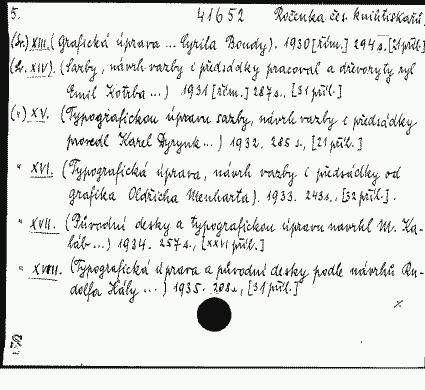 5. 41652 Ročenka čes. knihtiskařů.
(br.) XIII. (Grafická úprava ... Cyrila Boudy). 1930 [řím.] 294 s. [21 příl.]
(br. XIV). (Sazby, návrh vazby i předsádky pracoval a dřevoryty ryl
Emil Kotrba ...) 1931 [řím.] 287 s., [31 příl.]
(v) XV. (Typografickou úpravu sazby, návrh vazby i předsádky
provedl Karel Dyrynk ...) 1932. 285 s., [21 příl.]
" XVI. (Typografická úprava, návrh vazby i předsádky od
grafika Oldřicha Menharta). 1933. 243 s., [32 příl.].
" XVII. (Původní desky a typografickou úpravu navrhl M. Ka-
láb ...) 1934. 257 s., [XXVI příl.]
" XVIII. (Typografická úprava a původní desky podle návrhů Ru-
dolfa Hály ...) 1935. 208 s., [31 příl.]